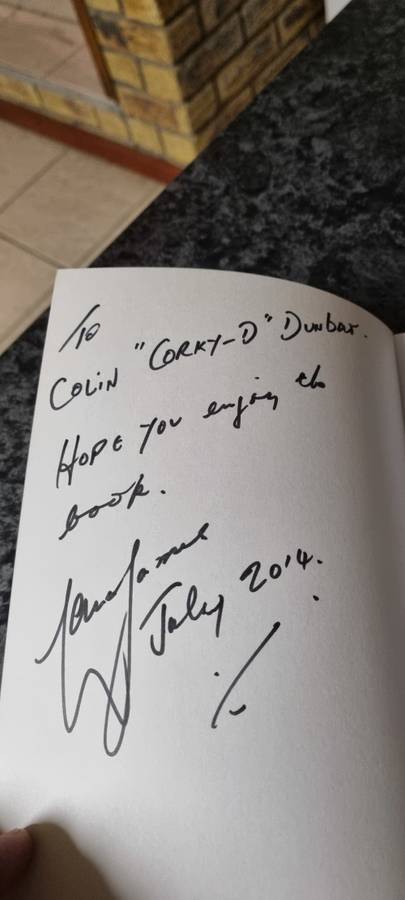 To
COLIN "CORKY-D" Dunbar.
HOPE YOU enjoy the
book.
July 2014.